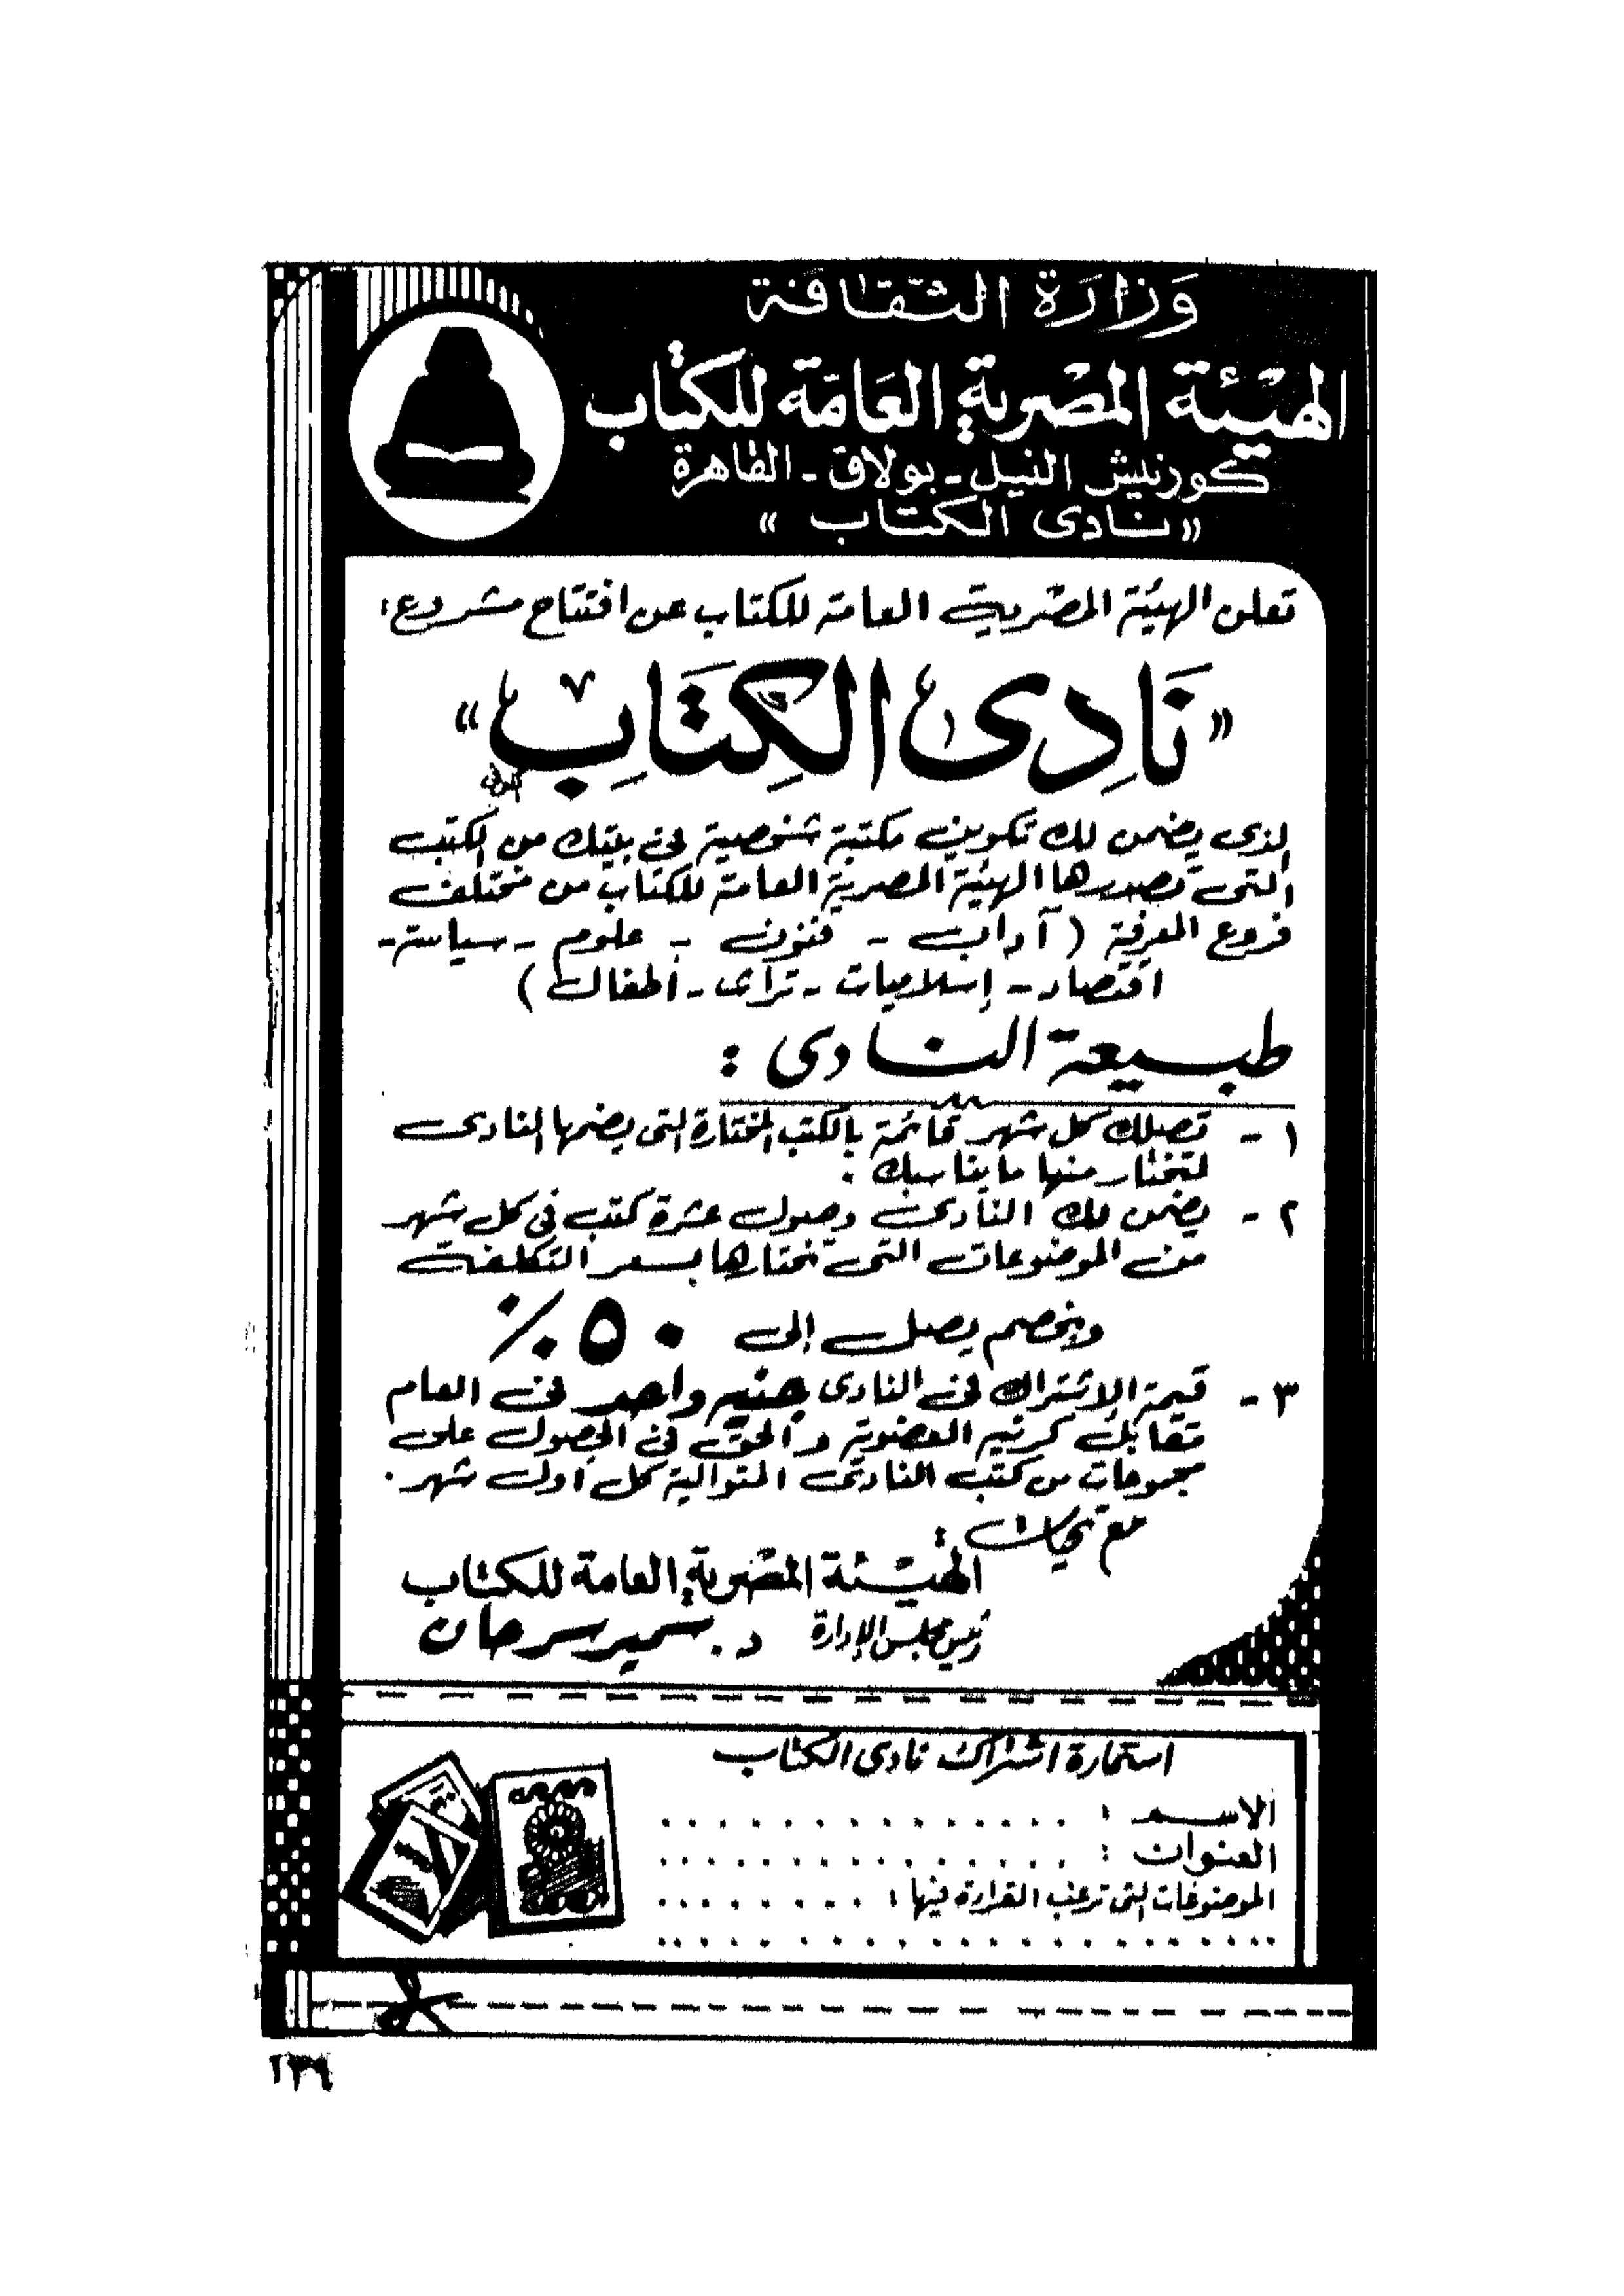 وزارة الثقافة
الهيئة المصرية العامة للكتاب
كورنيش النيل - بولاق - القاهرة
« نادى الكتاب »
تعلن الهيئة المصرية العامة للكتاب عن افتتاح مشروع :
« نَادِى الكِتَابِ »
الذى يضمن لك تكوين مكتبة شخصية فى بيتك من الكتب
التى تصدرها الهيئة المصرية العامة للكتاب من مختلف
فروع المعرفة ( آداب - فنون - علوم - سياسة -
اقتصاد - إسلاميات - تراث - أطفال )
طبيعة النادى :
١ - تصلك كل شهر قائمة بالكتب المختارة التى يضمها النادى
لتختار منها ما يناسبك .
٢ - يضمن لك النادى وصول عشرة كتب فى كل شهر
من الموضوعات التى تختارها بسعر التكلفة
وبخصم يصل إلى ٥٠ ٪
٣ - قيمة الاشتراك فى النادى جنيه واحد فى العام
تقابل كرنيه العضوية والحق فى الحصول على
مجموعات من كتب النادى المتوالية كل أول شهر .
مع تحيات :
الهيئة المصرية العامة للكتاب
رئيس مجلس الإدارة د. سمير سرحان
استمارة اشتراك نادى الكتاب
الاسم : . . . . . . . . . . . . . .
العنوان : . . . . . . . . . . . . . .
الموضوعات التى ترغب القراءة فيها : . . . . . . . .
. . . . . . . . . . . . . . . . . . . .
١٣٩